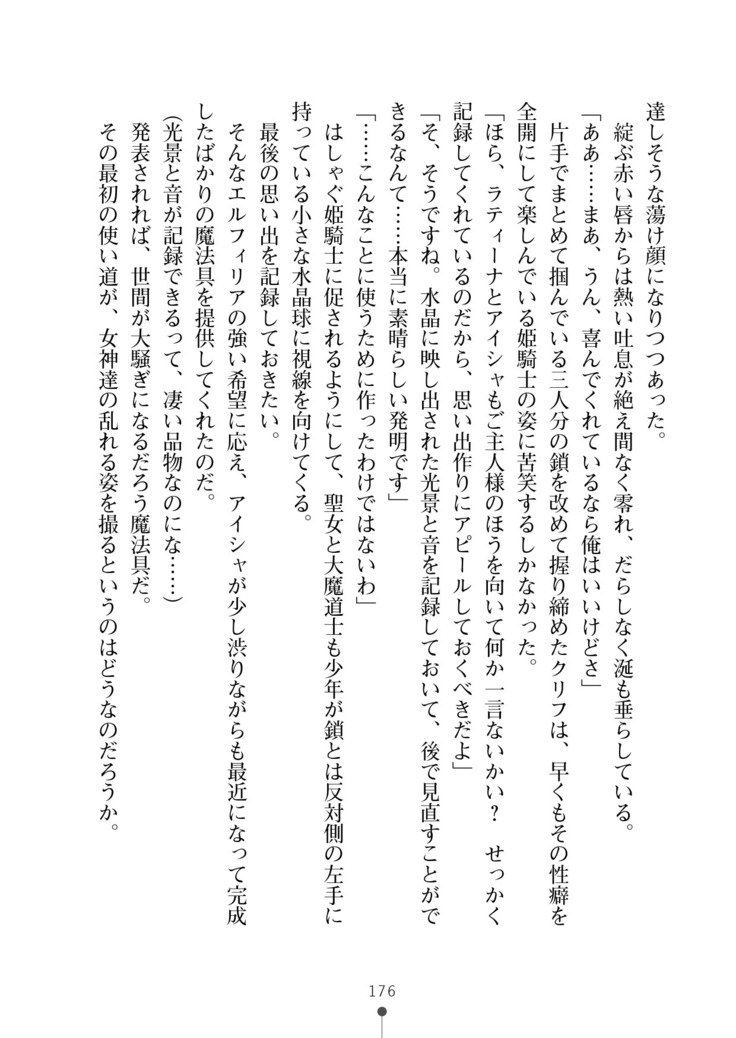 達しそうな蕩け顔になりつつあった。
綻ぶ赤い唇からは熱い吐息が絶え間なく零れ、だらしなく涎も垂らしている。
「ああ……まあ、うん、喜んでくれているなら俺はいいけどさ」
片手でまとめて掴んでいる三人分の鎖を改めて握り締めたクリフは、早くもその性癖を
全開にして楽しんでいる姫騎士の姿に苦笑するしかなかった。
「ほら、ラティーナとアイシャもご主人様のほうを向いて何か一言ないかい？　せっかく
記録してくれているのだから、思い出作りにアピールしておくべきだよ」
「そ、そうですね。水晶に映し出された光景と音を記録しておいて、後で見直すことがで
きるなんて……本当に素晴らしい発明です」
「……こんなことに使うために作ったわけではないわ」
はしゃぐ姫騎士に促されるようにして、聖女と大魔道士も少年が鎖とは反対側の左手に
持っている小さな水晶球に視線を向けてくる。
最後の思い出を記録しておきたい。
そんなエルフィリアの強い希望に応え、アイシャが少し渋りながらも最近になって完成
したばかりの魔法具を提供してくれたのだ。
（光景と音が記録できるって、凄い品物なのにな……）
発表されれば、世間が大騒ぎになるだろう魔法具だ。
その最初の使い道が、女神達の乱れる姿を撮るというのはどうなのだろうか。
176